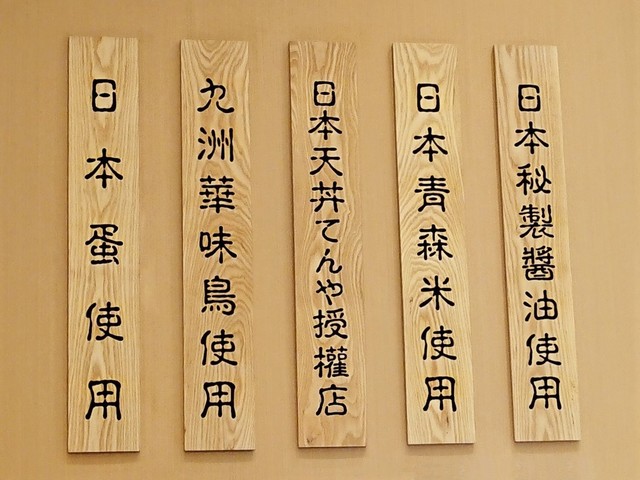 日本蛋使用
九洲華味鳥使用
日本天丼てんや授權店
日本青森米使用
日本秘製醬油使用